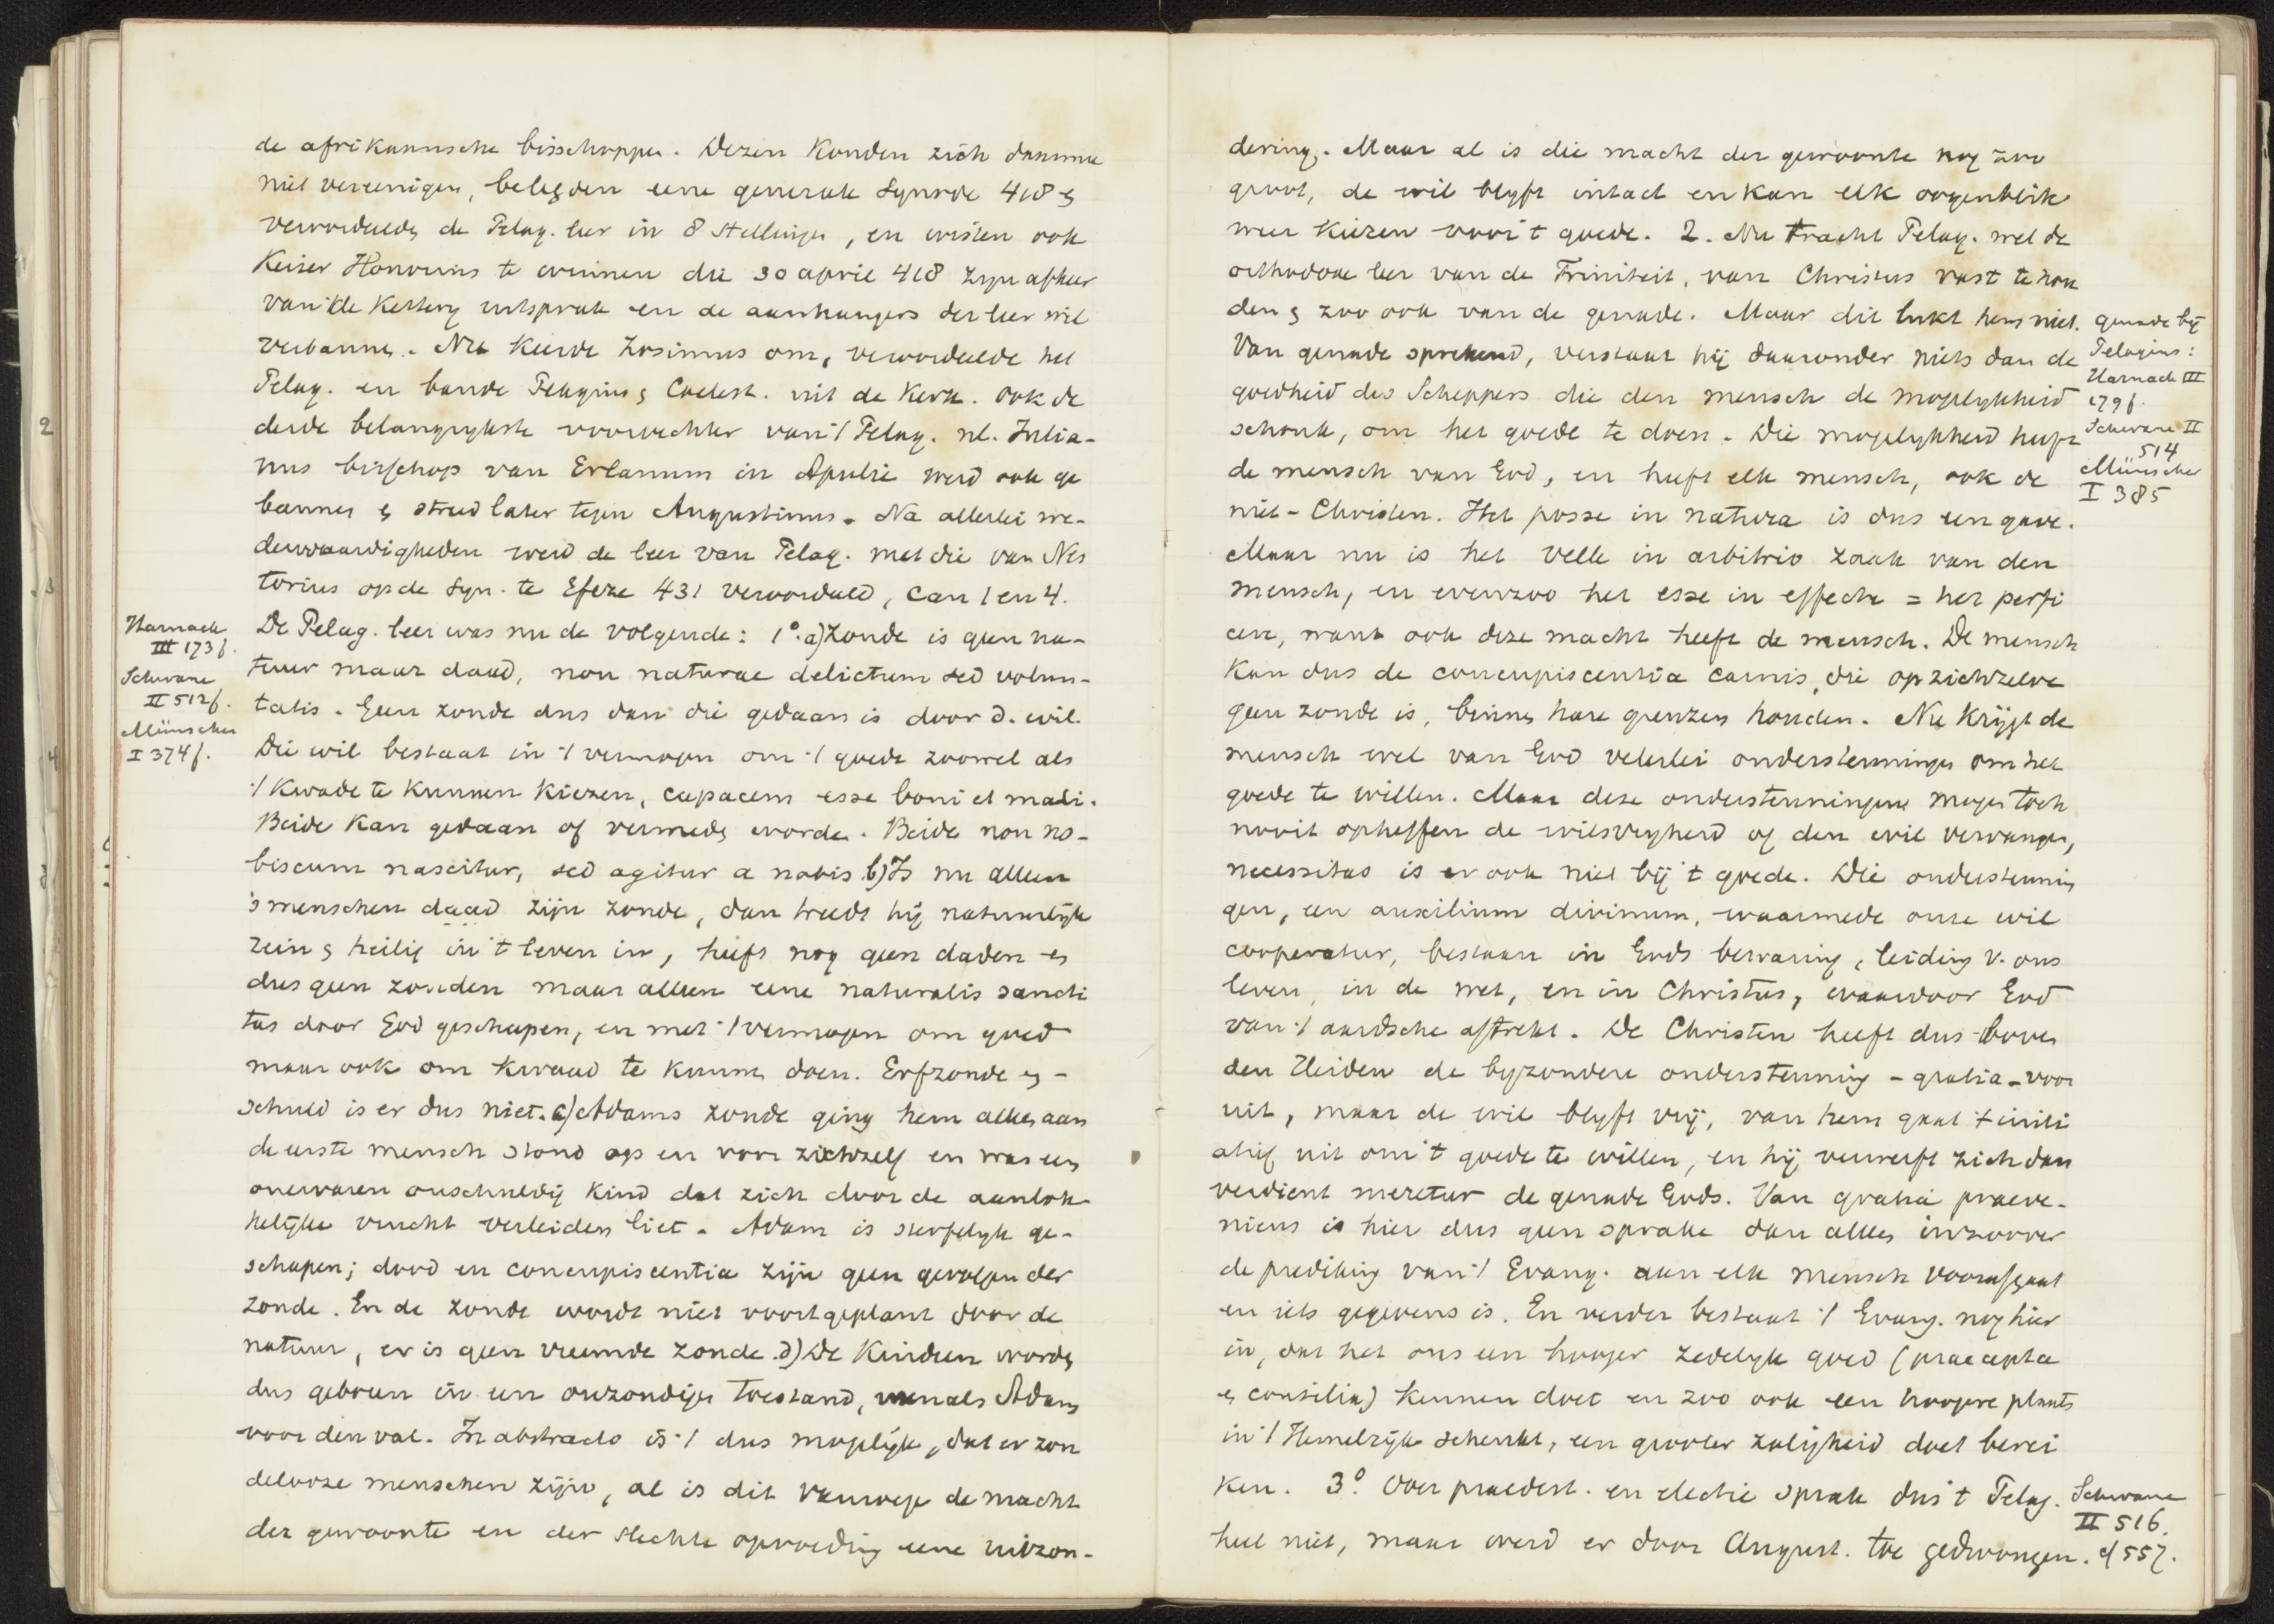 de afrikaansche bisschoppen. Dezen konden zich daarmee
niet vereenigen, belegden eene generale Synode 418 &
veroordeelde de Pelag. leer in 8 stellingen, en wisten ook
Keizer Honorius te winnen die 30 april 418 zijn afkeer
van die Ketterij uitsprak en de aanhangers der leer wil
verbannen. Nu keerde Zosimus om, veroordeelde het
Pelag. en bande Pelagius & Coelest. uit de Kerk. Ook de
derde belangrijkste voorvechter van 't Pelag. nl. Julia-
nus bisschop van Eclanum in Apulie werd ook ge
bannen & streed later tegen Augustinus. Na allerlei we-
derwaardigheden werd de leer van Pelag. met die van Nes
torius op de Syn. te Efeze 431 veroordeeld, can 1 en 4.
Harnack
III 173 f.
Schwane
II 512 f.
Münscher
I 374 f.
De Pelag. leer was nu de volgende: 1° a) Zonde is geen na-
tuur maar daad, non naturae delictum sed volun-
tatis. Geen zonde dus dan die gedaan is door d. wil.
Die wil bestaat in 't vermogen om 't goede zoowel als
't kwade te kunnen kiezen, capacem esse boni et mali.
Beide kan gedaan of vermeden worden. Beide non no-
biscum nascitur, sed agitur a nobis. b) Is nu alleen
's menschen daad zijn zonde, dan treedt hij natuurlijk
rein & heilig in 't leven in, heeft nog geen daden en
dus geen zonden maar alleen eene naturalis sancti
tas door God geschapen, en met 't vermogen om goed
maar ook om kwaad te kunnen doen. Erfzonde en -
schuld is er dus niet. c) Adams zonde ging hem alleen aan
de eerste mensch stond op en voor zichzelf en was een
onervaren onschuldig kind dat zich door de aanlok-
kelijke vrucht verleiden liet. Adam is sterfelijk ge-
schapen; dood en concupiscentia zijn geen gevolgen der
zonde. En de zonde wordt niet voortgeplant door de
natuur, er is geen vreemde zonde. d) De kinderen worden
dus geboren in een onzondigen toestand, evenals Adam
voor den val. In abstracto is 't dus mogelijk, dat er zon
delooze menschen zijn, al is dit vanwege de macht
der gewoonte en der slechte opvoeding eene uitzon-
dering. Maar al is die macht der gewoonte nog zoo
groot, de wil blijft intact en kan elk oogenblik
weer kiezen voor 't goede. 2. Nu tracht Pelag. wel de
orthodoxe leer van de Triniteit, van Christus vast te hou
den & zoo ook van de genade. Maar dit lukt hem niet.
Van genade sprekend, verstaat hij daaronder niets dan de
goedheid des Scheppers die den mensch de mogelijkheid
schonk, om het goede te doen. Die mogelijkheid heeft
de mensch van God, en heeft elk mensch, ook de
niet-Christen. Het posse in natura is dus een gave.
genade bij
Pelagius:
Harnack III
179 f.
Schwane II
514
Münscher
I 385
Maar nu is het velle in arbitrio zaak van den
mensch, en evenzoo het esse in effectu = het perfi
cere, want ook deze macht heeft de mensch. De mensch
kan dus de concupiscentia carnis, die op zichzelve
geen zonde is, binnen hare grenzen houden. Nu krijgt de
mensch wel van God velerlei ondersteuningen om het
goede te willen. Maar deze ondersteuningen mogen toch
nooit opheffen de wilsvrijheid of den wil vervangen,
necessitas is er ook niet bij 't goede. Die ondersteunin
gen, een auxilium divinum, waarmede onze wil
cooperatur, bestaan in Gods bewaring, leiding v. ons
leven, in de wet, en in Christus, waardoor God
van 't aardsche aftrekt. De Christen heeft dus boven
den Heiden de bijzondere ondersteuning - gratia - voor
uit, maar de wil blijft vrij, van hem gaat 't initi
atief uit om 't goede te willen, en hij verwerft zich dan
verdient meretur de genade Gods. Van gratia praeve-
niens is hier dus geen sprake dan alleen inzoover
de prediking van 't Evang. aan elk mensch voorafgaat
en iets gegevens is. En verder bestaat 't Evang. nog hier
in, dat het ons een hooger zedelijk goed (praecepta
& consilia) kennen doet en zoo ook een hoogere plaats
in 't Hemelrijk schenkt, een grooter zaligheid doet berei
ken. 3° Over praedest. en electie sprak dus 't Pelag.
heel niet, maar werd er door August. toe gedwongen.
Schwane
II 516.
cf 557.